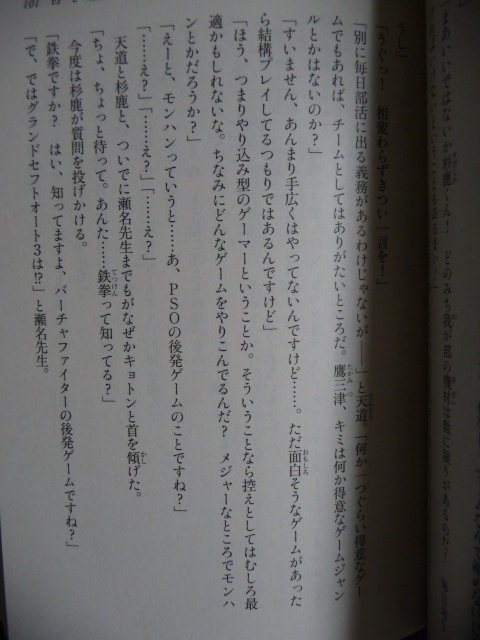 101
うし」
「うぐっ！　相変わらずきつい一言を！」
「別に毎日部活に出る義務があるわけじゃないが――」と天道。「何か一つぐらい得意なゲー
ムでもあれば、チームとしてはありがたいところだ。鷹三津、キミは何か得意なゲームジャン
ルとかはないのか？」
「すいません、あんまり手広くはやってないんですけど……。ただ面白そうなゲームがあった
ら結構プレイしてるつもりではあるんですけど」
「ほう、つまりやり込み型のゲーマーということか。そういうことなら控えとしてはむしろ最
適かもしれないな。ちなみにどんなゲームをやりこんでるんだ？　メジャーなところでモンハ
ンとかだろうか？」
「えーと、モンハンっていうと……あ、PSOの後発ゲームのことですね？」
「……え？」「……え？」「……え？」
天道と杉鹿と、ついでに瀬名先生までもがなぜかキョトンと首を傾げた。
「ちょ、ちょっと待って。あんた……鉄拳って知ってる？」
今度は杉鹿が質問を投げかける。
「鉄拳ですか？　はい、知ってますよ、バーチャファイターの後発ゲームですね？」
「で、ではグランドセフトオート3は!?」と瀬名先生。